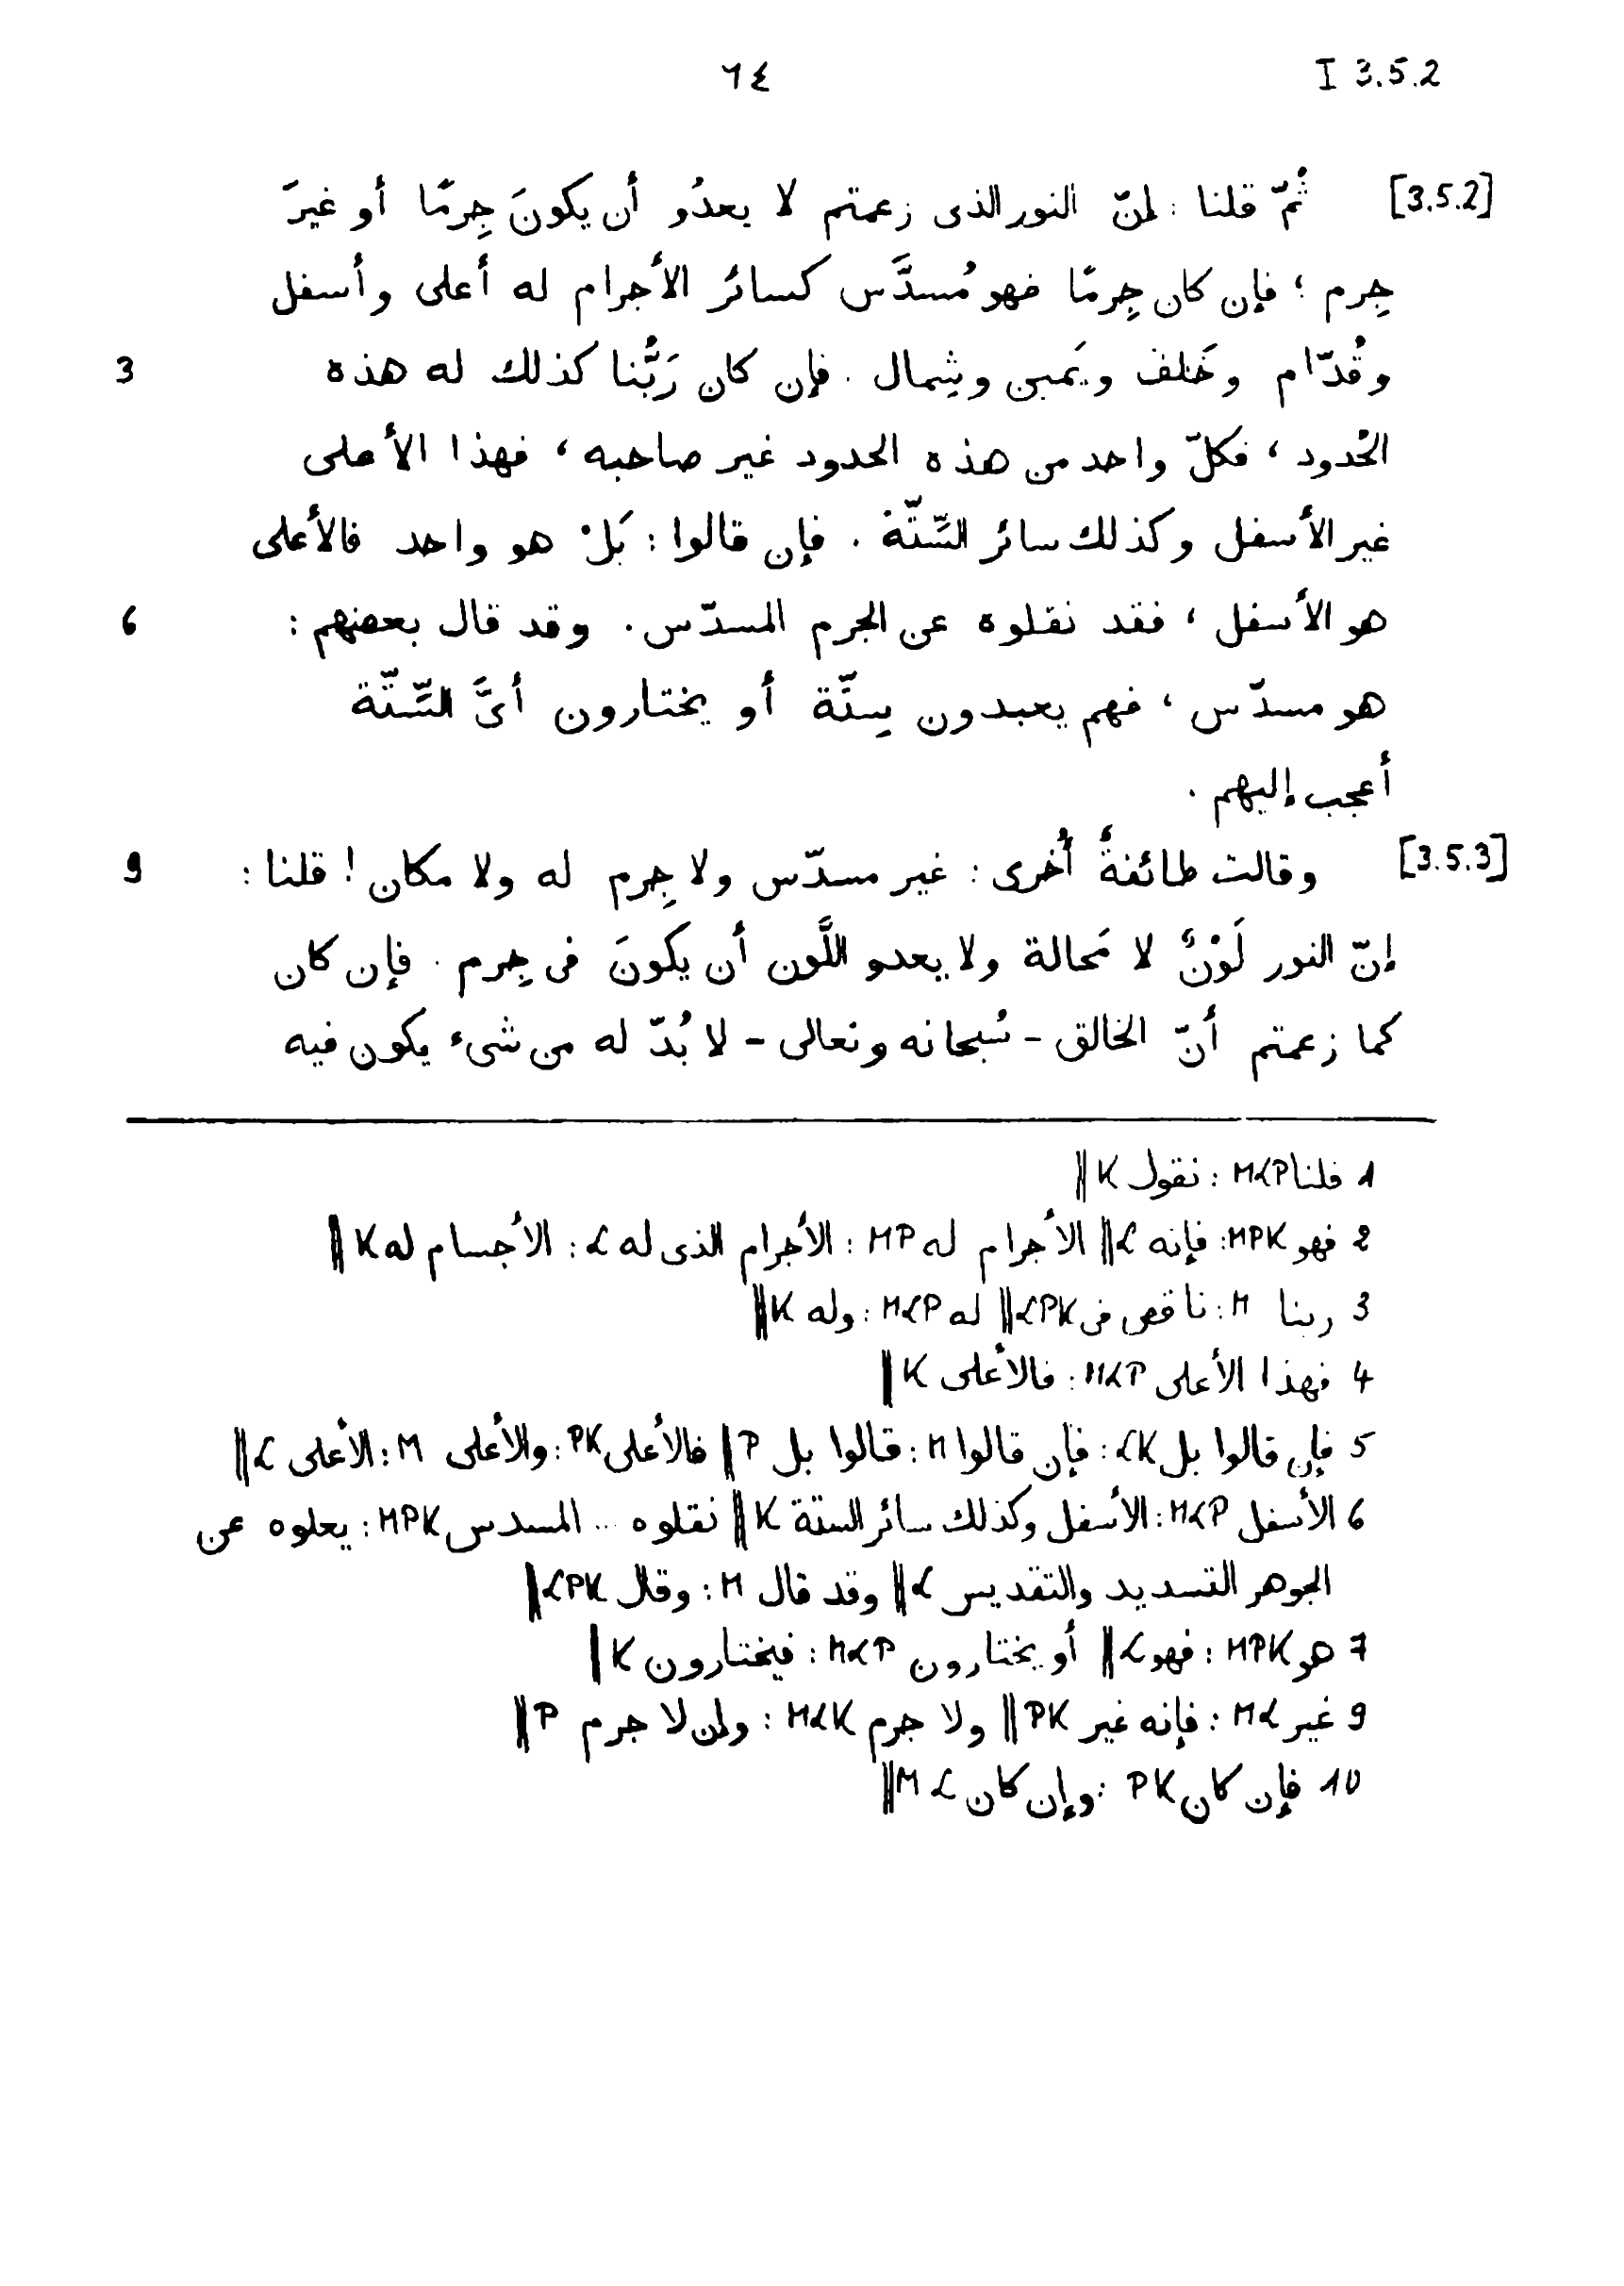 ٦٤ I 3.5.2
[3.5.2] ثُمّ قلنا : إنّ النور الذى زعمتم لا يعدُو أن يكونَ جِرمًا أو غيرَ
جِرم ؛ فإن كان جِرمًا فهو مُسدَّس كسائر الأجرام له أعلى وأسفل
3 وقُدّام وخَلف ويَمين وشِمال . فإن كان رَبُّنا كذلك له هذه
الحُدود ، فكلّ واحد من هذه الحدود غير صاحبه ، فهذا الأعلى
غير الأسفل وكذلك سائر السِّتّة . فإن قالوا : بَلْ هو واحد فالأعلى
6 هو الأسفل ، فقد نقلوه عن الجرم المسدّس . وقد قال بعضهم :
هو مسدّس ، فهم يعبدون سِتّة أو يختارون أىَّ السِّتّة
أعجب إليهم .
9 [3.5.3] وقالت طائفةٌ أُخرى : غير مسدّس ولا جِرم له ولا مكان ! قلنا :
إنّ النور لَوْنٌ لا مَحالة ولا يعدو اللَّون أن يكونَ فى جِرم . فإن كان
كما زعمتم أنّ الخالق - سُبحانه وتعالى - لا بُدّ له من شىء يكون فيه
1 قلنا MLP : نقول K ||
2 فهو MPK : فإنه L || الأجرام له MP : الأجرام الذى له L : الأجسام له K ||
3 ربنا M : ناقص فى LPK || له MLP : وله K ||
4 فهذا الأعلى MLP : فالأعلى K ||
5 فإن قالوا بل LK : فإن قالوا M : قالوا بل P || فالأعلى PK : والأعلى M : الأعلى L ||
6 الأسفل MLP : الأسفل وكذلك سائر الستة K || نقلوه ... المسدس MPK : يعلوه عن
الجوهر التسديد والتقديس L || وقد قال M : وقال LPK ||
7 هو MPK : فهو L || أو يختارون MLP : فيختارون K ||
9 غير ML : فإنه غير PK || ولا جرم MLK : وإن لا جرم P ||
10 فإن كان PK : وإن كان ML ||